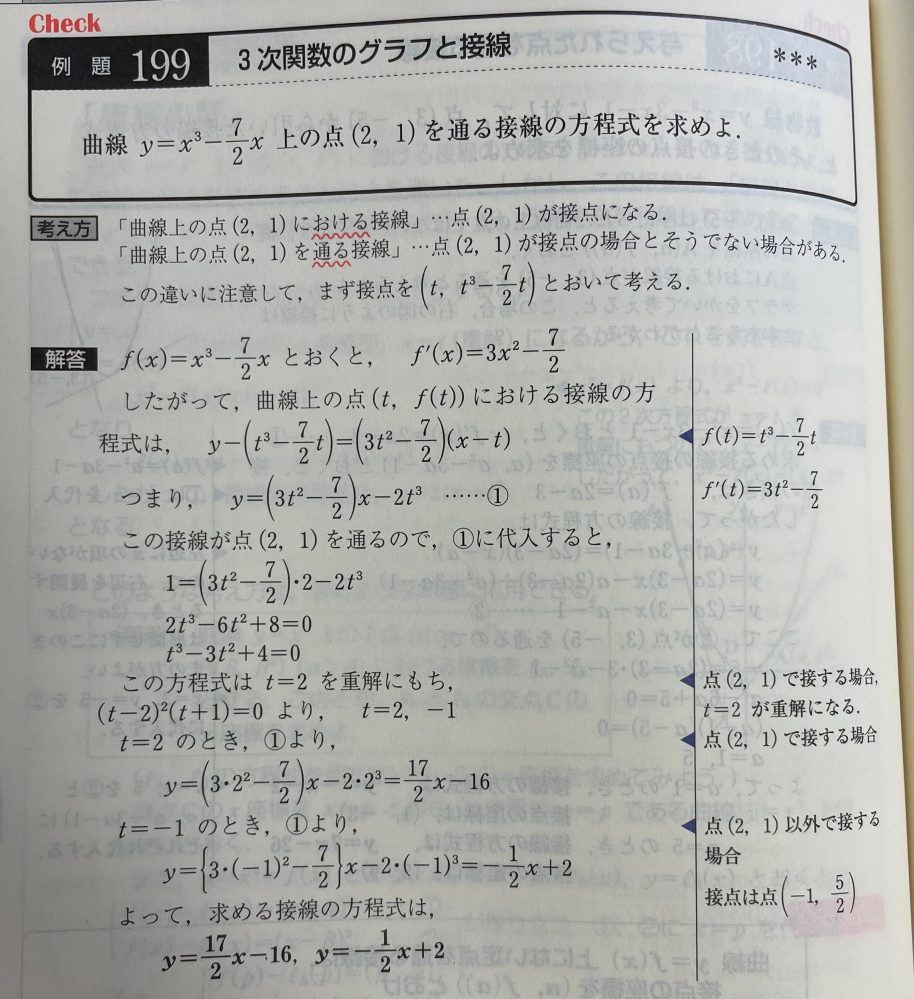 Check
例題 199 3次関数のグラフと接線 ***
曲線 y=x³−7/2x 上の点(2, 1)を通る接線の方程式を求めよ.
考え方 「曲線上の点(2, 1)における接線」…点(2, 1)が接点になる.
「曲線上の点(2, 1)を通る接線」…点(2, 1)が接点の場合とそうでない場合がある.
この違いに注意して，まず接点を(t, t³−7/2t)とおいて考える.
解答 f(x)=x³−7/2x とおくと， f′(x)=3x²−7/2
したがって，曲線上の点(t, f(t))における接線の方
程式は， y−(t³−7/2t)=(3t²−7/2)(x−t)
◀ f(t)=t³−7/2t
つまり， y=(3t²−7/2)x−2t³ ……①
f′(t)=3t²−7/2
この接線が点(2, 1)を通るので，①に代入すると，
1=(3t²−7/2)·2−2t³
2t³−6t²+8=0
t³−3t²+4=0
この方程式は t=2 を重解にもち，
◀ 点(2, 1)で接する場合,
(t−2)²(t+1)=0 より， t=2, −1
t=2 が重解になる.
t=2 のとき，①より，
◀ 点(2, 1)で接する場合
y=(3·2²−7/2)x−2·2³=17/2x−16
t=−1 のとき，①より，
◀ 点(2, 1)以外で接する
場合
y={3·(−1)²−7/2}x−2·(−1)³=−1/2x+2
接点は点(−1, 5/2)
よって，求める接線の方程式は，
y=17/2x−16, y=−1/2x+2